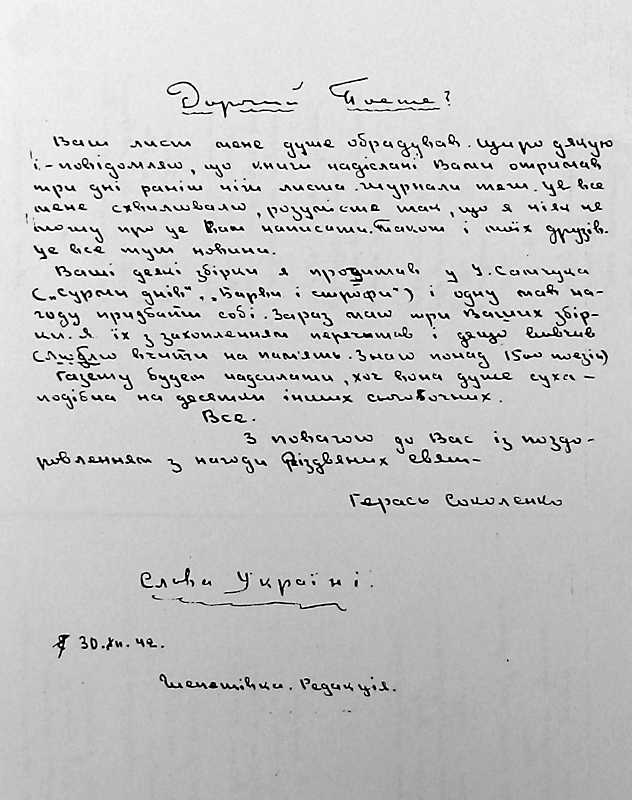 Дорогий Поете!
Ваш лист мене дуже обрадував. Щиро дякую
і – повідомляю, що книги надіслані Вами отримав
три дні раніш ніж листа. Журнали теж. Це все
мене схвилювало, розумієте так, що я ніяк не
можу про це Вам написати. Також і моїх друзів.
Це все тут новини.
Ваші деякі збірки я прочитав у У. Самчука
(„Сурми днів", „Барви і строфи") і одну мав на-
году придбати собі. Зараз маю три Ваших збір-
ки. Я їх з захопленням перечытав і дещо вивчив
(Люблю вчити на пам'ять. Знаю понад 1500 поезій)
Газету будем надсилати, хоч вона дуже суха –
подібна на десятки інших сьогочних.
Все.
З повагою до Вас із поздо-
ровленням з нагоди Різдвяних свят –
Герась Соколенко
Слава Україні!
30.XII.42.
Шепетівка. Редакція.